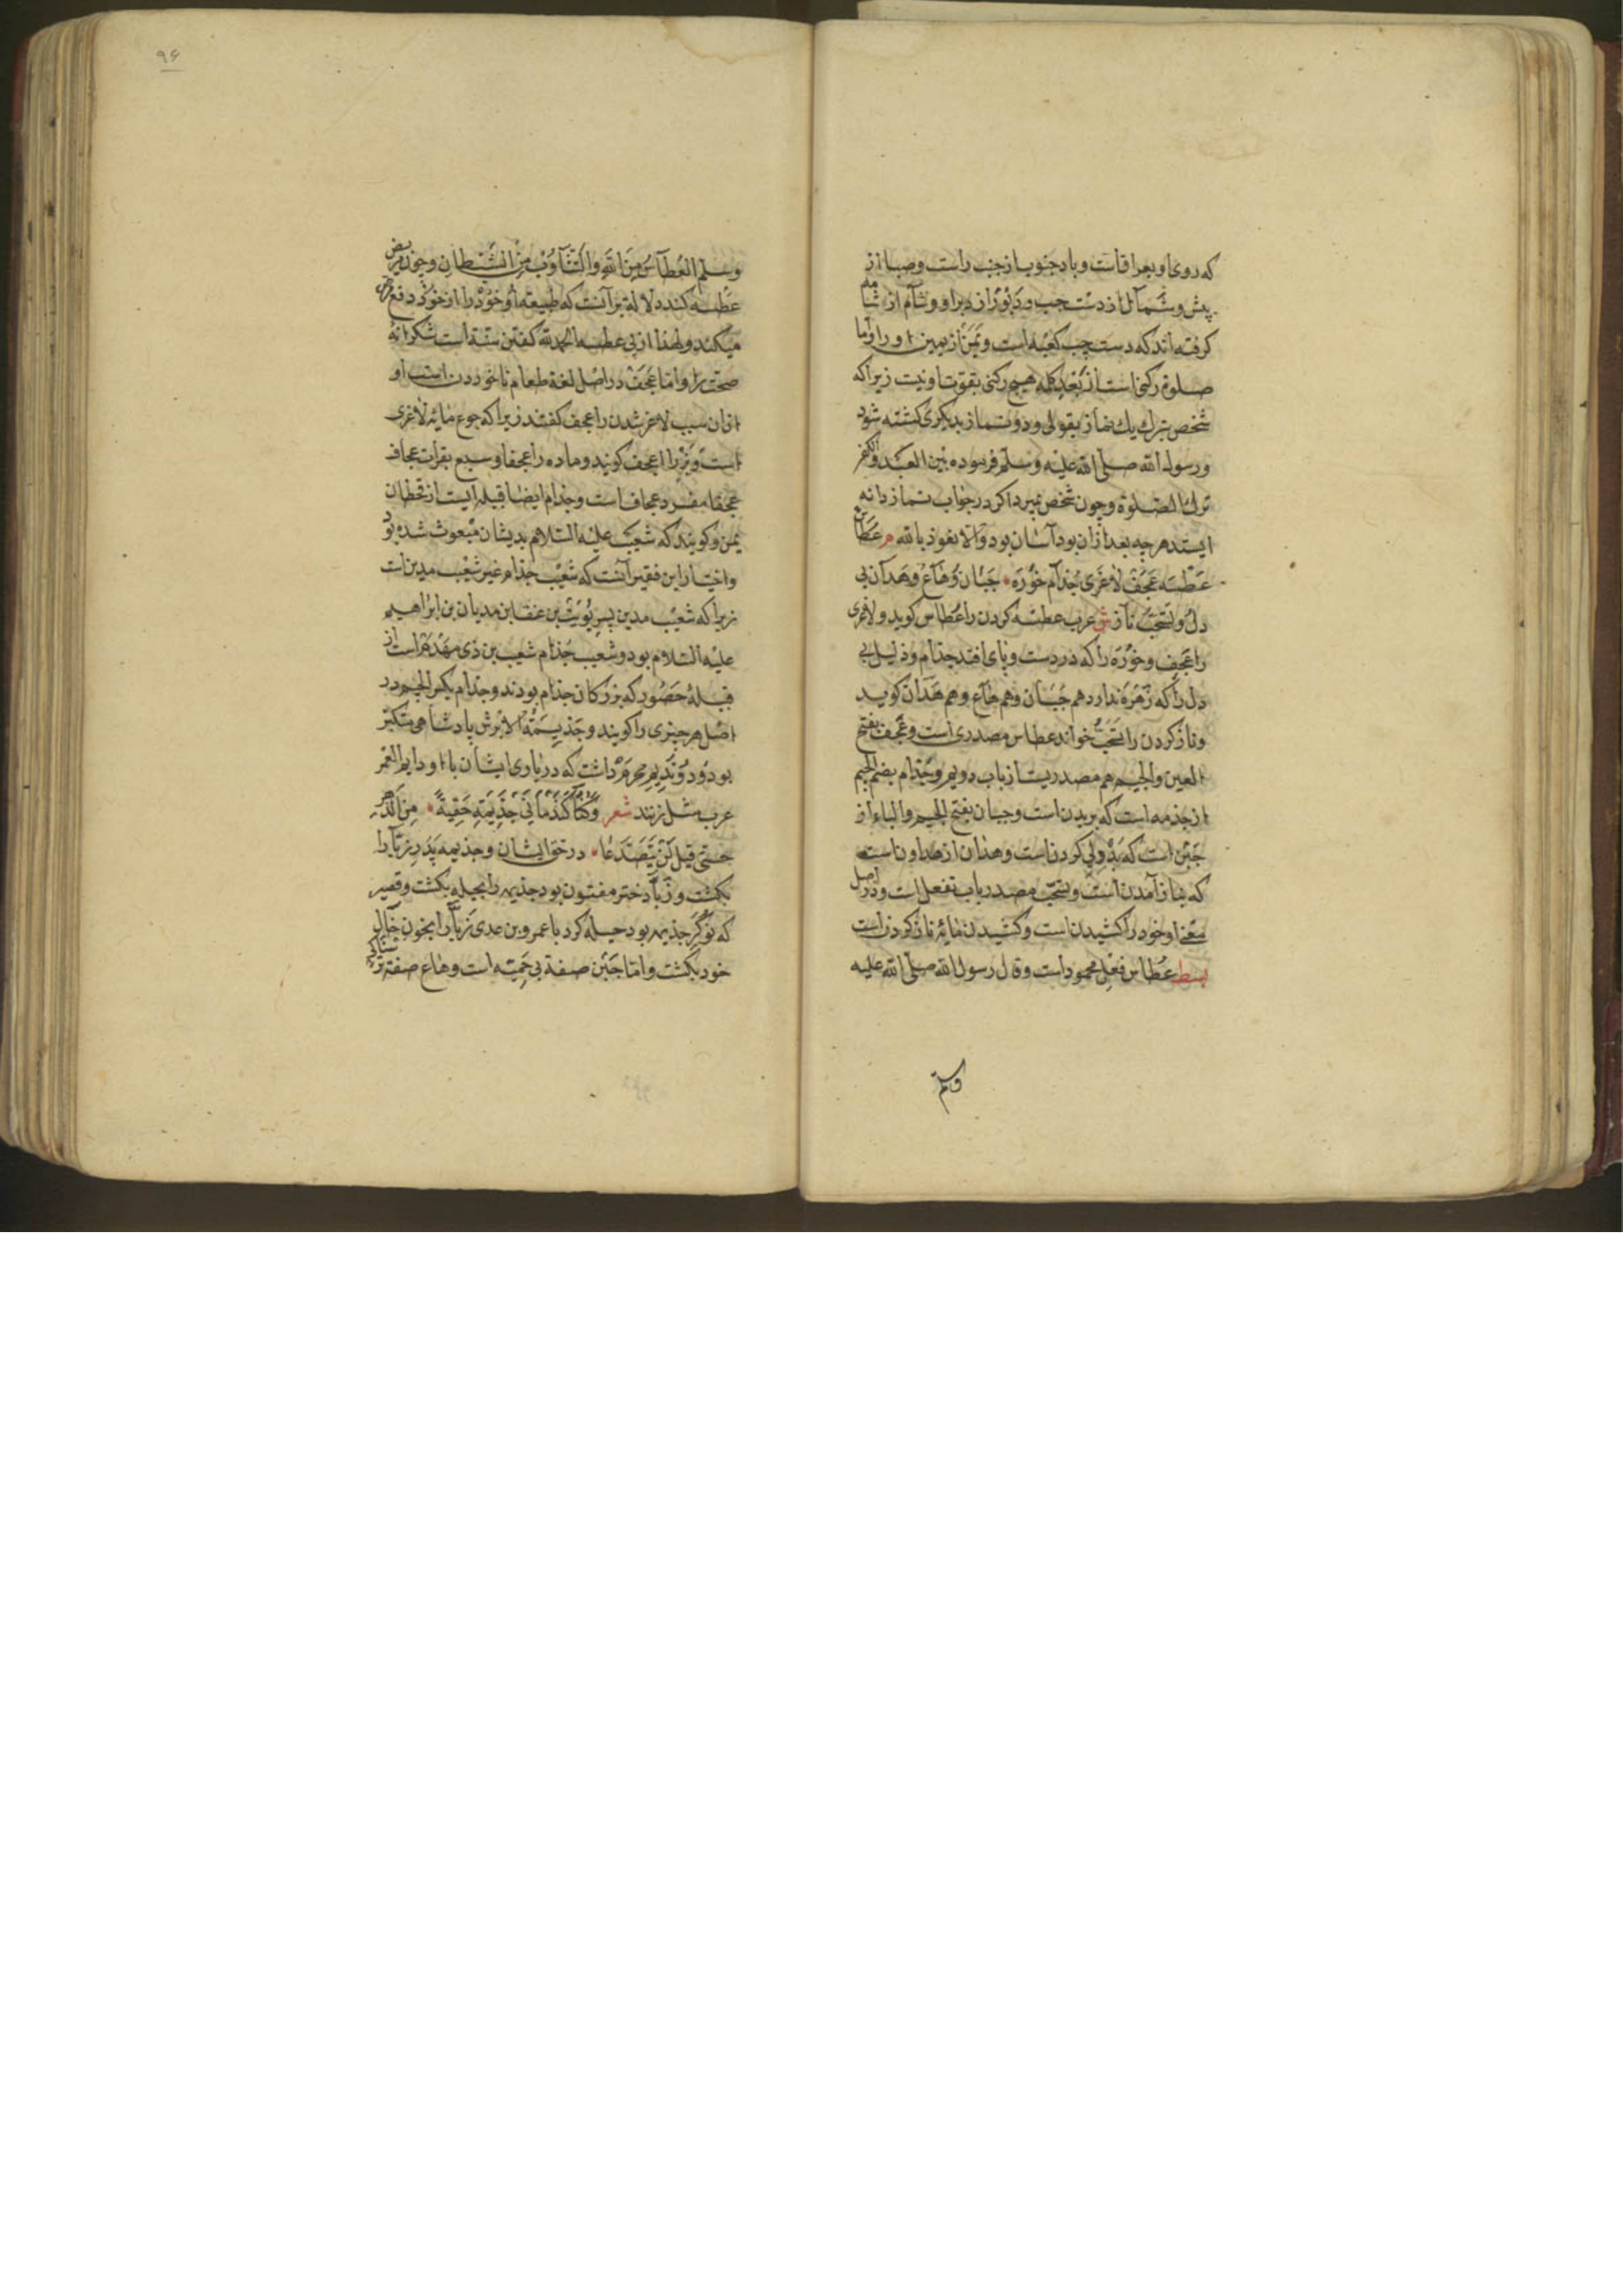 که روی او بعراقاست و باد جنوب از جنب راست و صبا از
پیش و شمال از دست چپ و دبور از دبر او و شام از شامه
کرفته اند که دست چپ کعبه است و یمن از یمین او را و اما
صلوة رکنی است از بعد کلمه هیچ رکنی بقوت او نیست زیرا که
شخص بترک یک نماز بقولی و دو نماز بدیکری کشته شود
و رسول الله صلی الله علیه وسلم فرموده بین العبد والکفر
ترک الصلوة و چون شخص بمیرد اکر در جواب نماز دانه
ایستد هرچه بعد ازان بود آسان بود والا نعوذ بالله م عطاس
عطسه عجف لاغری جذام خوره جبان و هاع و هدان بی
دل و تسحب ناز ش عرب عطسه کردن را عطاس کوید و لاغری
را عجف و خوره را که در دست و پای افتد جذام و ذلیل بی
دل را که زهره ندارد هم جبان و هم هاع و هم هدان کوید
و ناز کردن را تسحب خواند عطاس مصدری است و عجف بفتح
العین والجیم هم مصدریست از باب دویم و جذام بضم الجیم
از جذمه است که بریدن است و جبان بفتح الجیم والباء از
جبن است که بد ولی کردن است و هذان از هداون است
که بناز آمدن است و تسحب مصدر باب تفعل است و در اصل
معنی او خود را کشیدن است و کشیدن مایه ناز کردن است
بسط عطاس فعل محمود است و قال رسول الله صلی الله علیه
وسلم
۹۶
وسلم العطاس من الله والتثاوب من الشیطان و چون مریض
عطسه کند دلالة بر آنست که طبیعة او خود را از خود دفع مرض
میکند و لهذا از پی عطسه الحمد لله کفتن سنة است شکرانه
صحت را و اما عجف در اصل لغة طعام ناخوردن است او
ازان سبب لاغر شدن را عجف کفتند زیرا که جوع مایه لاغری
است و نر را اعجف کویند و ماده را عجفا و سبع بقرات عجاف
عجفا مفرد عجاف است و جذام ایضا قبیله ایست از قحطان
یمن و کویند که شعیب علیه السلام بدیشان مبعوث شده بود
و اختیار این فقیر آنست که شعیب جذام غیر شعیب مدین است
زیرا که شعیب مدین پسر یویب بن عنقا بن مدیان بن ابراهیم
علیه السلام بود و شعیب جذام شعیب بن ذی مهدم است از
قبیله حضور که بزرکان جذام بودند و جذام بکسر الجیم در
اصل هر چیزی را کویند و جذیمة الابرش پادشاهی متکبر
بود و دو ندیم محرم داشت که در یاوی ایشان با او دایم العمر
عرب مثل زنند شعر وکنا کندمانی جذیمة حقبة من الدهر
حتی قیل لن یتصدعا در حق ایشان و جذیمه پدر زبا را
بکشت و زبا دختر مفتون بود جذیمه را بحیله بکشت و قصیر
که نوکر جذیمه بود حیله کرد با عمرو بن عدی زبا را بخون خال
خود بکشت و اما جبن صفة بی حمیته است و هاع صفة ترسناکی